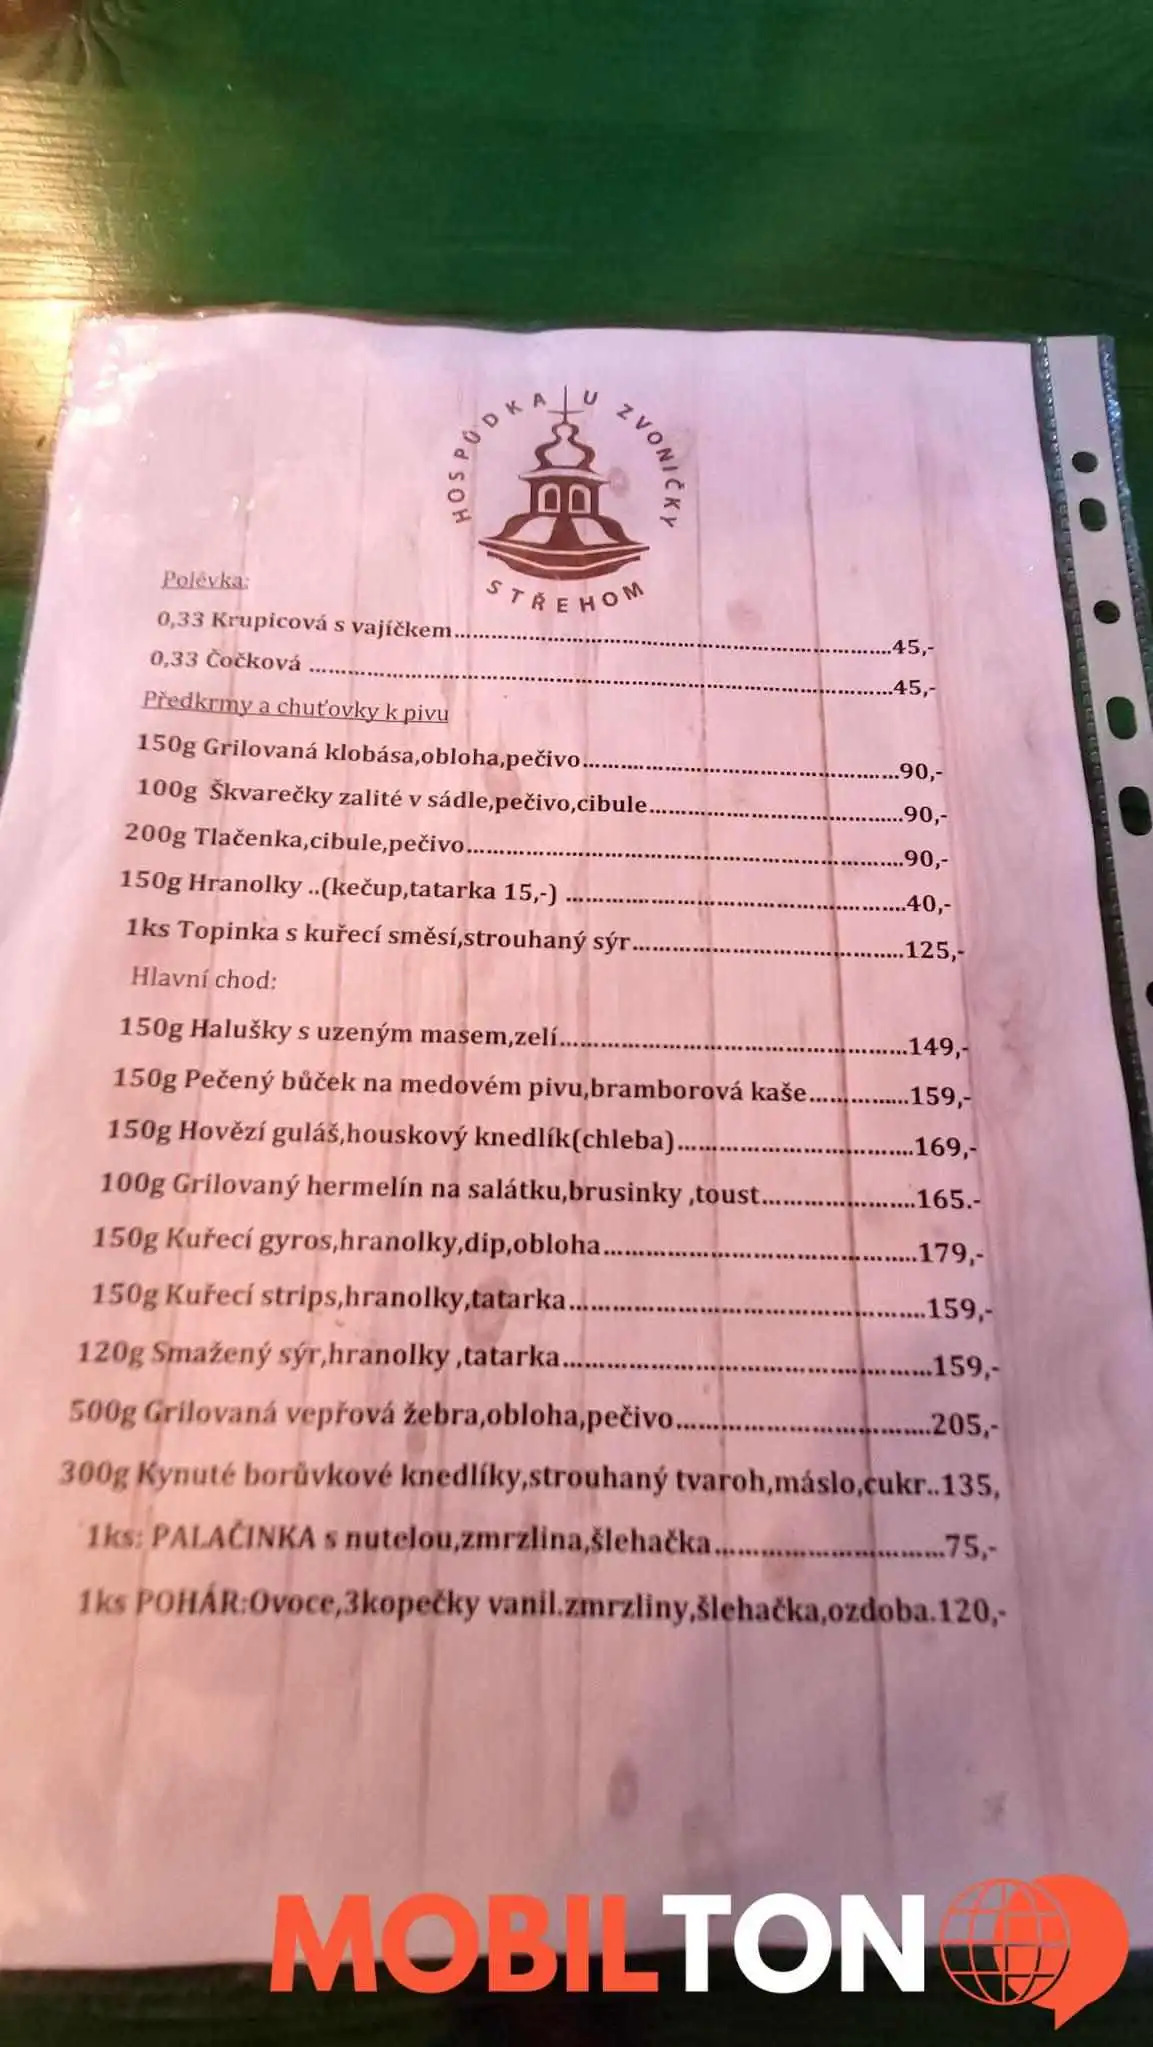 HOSPŮDKA U ZVONIČKY
STŘEHOM
Polévka:
0,33 Krupicová s vajíčkem..........45,-
0,33 Čočková ..........45,-
Předkrmy a chuťovky k pivu
150g Grilovaná klobása,obloha,pečivo..........90,-
100g Škvarečky zalité v sádle,pečivo,cibule..........90,-
200g Tlačenka,cibule,pečivo..........90,-
150g Hranolky ..(kečup,tatarka 15,-) ..........40,-
1ks Topinka s kuřecí směsí,strouhaný sýr..........125,-
Hlavní chod:
150g Halušky s uzeným masem,zelí..........149,-
150g Pečený bůček na medovém pivu,bramborová kaše..........159,-
150g Hovězí guláš,houskový knedlík(chleba)..........169,-
100g Grilovaný hermelín na salátku,brusinky ,toust..........165.-
150g Kuřecí gyros,hranolky,dip,obloha..........179,-
150g Kuřecí strips,hranolky,tatarka..........159,-
120g Smažený sýr,hranolky ,tatarka..........159,-
500g Grilovaná vepřová žebra,obloha,pečivo..........205,-
300g Kynuté borůvkové knedlíky,strouhaný tvaroh,máslo,cukr..135,
1ks: PALAČINKA s nutelou,zmrzlina,šlehačka..........75,-
1ks POHÁR:Ovoce,3kopečky vanil.zmrzliny,šlehačka,ozdoba.120,-
MOBILTON